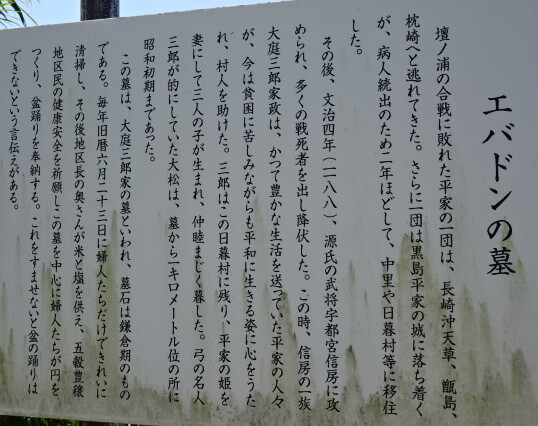 エバドンの墓
壇ノ浦の合戦に敗れた平家の一団は、長崎沖天草、甑島、
枕崎へと逃れてきた。さらに一団は黒島平家の城に落ち着く
が、病人続出のため二年ほどして、中里や日暮村等に移住
した。
その後、文治四年(一一八八)、源氏の武将宇都宮信房に攻
められ、多くの戦死者を出し降伏した。この時、信房の一族
大庭三郎家政は、かつて豊かな生活を送っていた平家の人々
が、今は貧困に苦しみながらも平和に生きる姿に心をうた
れ、村人を助けた。三郎はこの日暮村に残り、平家の姫を
妻にして三人の子が生まれ、仲睦まじく暮した。弓の名人
三郎が的にしていた大松は、墓から一キロメートル位の所に
昭和初期まであった。
この墓は、大庭三郎家の墓といわれ、墓石は鎌倉期のもの
である。毎年旧暦六月二十三日に婦人たちだけできれいに
清掃し、その後地区長の奥さんが米と塩を供え、五穀豊穣
地区民の健康安全を祈願しこの墓を中心に婦人たちが円を
つくり、盆踊りを奉納する。これをすませないと盆の踊りは
できないという言伝えがある。